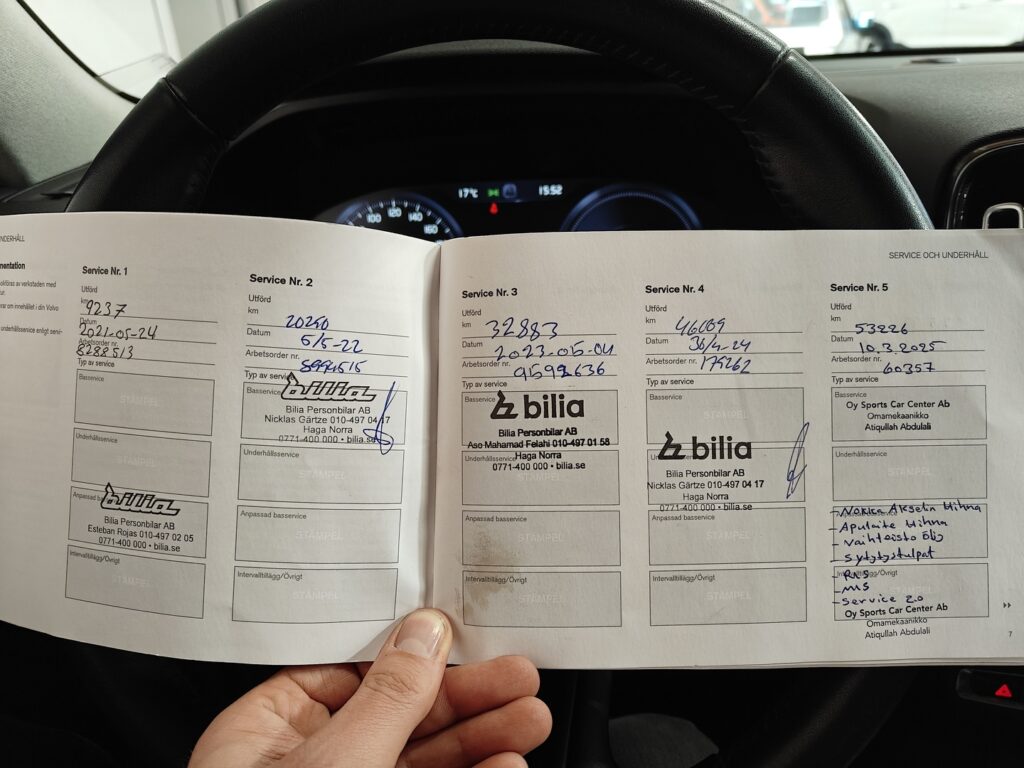 17°C
15:52
100
120
140
160
NDERHÅLL
mentation
Service Nr. 1
Utförd
km
9237
Datum
2021-05-24
Arbetsorder nr.
8288513
Typ av service
Basservice
STÄMPEL
Underhållsservice
STÄMPEL
bilia
Bilia Personbilar AB
Esteban Rojas 010-497 02 05
0771-400 000 • bilia.se
Intervalltillägg/Övrigt
STÄMPEL
Service Nr. 2
Utförd
km
20250
Datum
6/5-22
Arbetsorder nr.
Typ av service
Basservice
bilia
Bilia Personbilar AB
Nicklas Gärtze 010-497 04 17
Haga Norra
0771-400 000 • bilia.se
Underhållsservice
STÄMPEL
Anpassad basservice
STÄMPEL
Intervalltillägg/Övrigt
STÄMPEL
SERVICE OCH UNDERHÅLL
Service Nr. 3
Utförd
km
32883
Datum
2023-05-04
Arbetsorder nr.
9592636
Typ av service
Basservice
bilia
Bilia Personbilar AB
Aso Mahamad Felahi 010-497 01 58
Haga Norra
0771-400 000 • bilia.se
Underhållsservice
Anpassad basservice
STÄMPEL
Intervalltillägg/Övrigt
STÄMPEL
Service Nr. 4
Utförd
km
46089
Datum
Arbetsorder nr.
175262
Typ av service
Basservice
STÄMPEL
Underhållsservice
bilia
Bilia Personbilar AB
Nicklas Gärtze 010-497 04 17
Haga Norra
0771-400 000 • bilia.se
Anpassad basservice
STÄMPEL
Intervalltillägg/Övrigt
STÄMPEL
Service Nr. 5
Utförd
km
53226
Datum
10.3.2025
Arbetsorder nr.
60357
Typ av service
Basservice
Oy Sports Car Center Ab
Omamekaanikko
Atiqullah Abdulali
Underhållsservice
STÄMPEL
- Apulaite Hihna
- Vaihteisto Öljy
- sytytystulpat
- RNS
- MS
- Service 2.0
Oy Sports Car Center Ab
Omamekaanikko
Atiqullah Abdulali
7